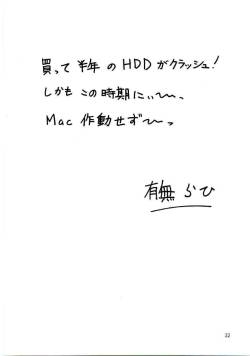 買って半年のHDDがクラッシュ!
しかもこの時期にぃ〜〜。
Mac作動せず〜〜っ
有無らひ
32